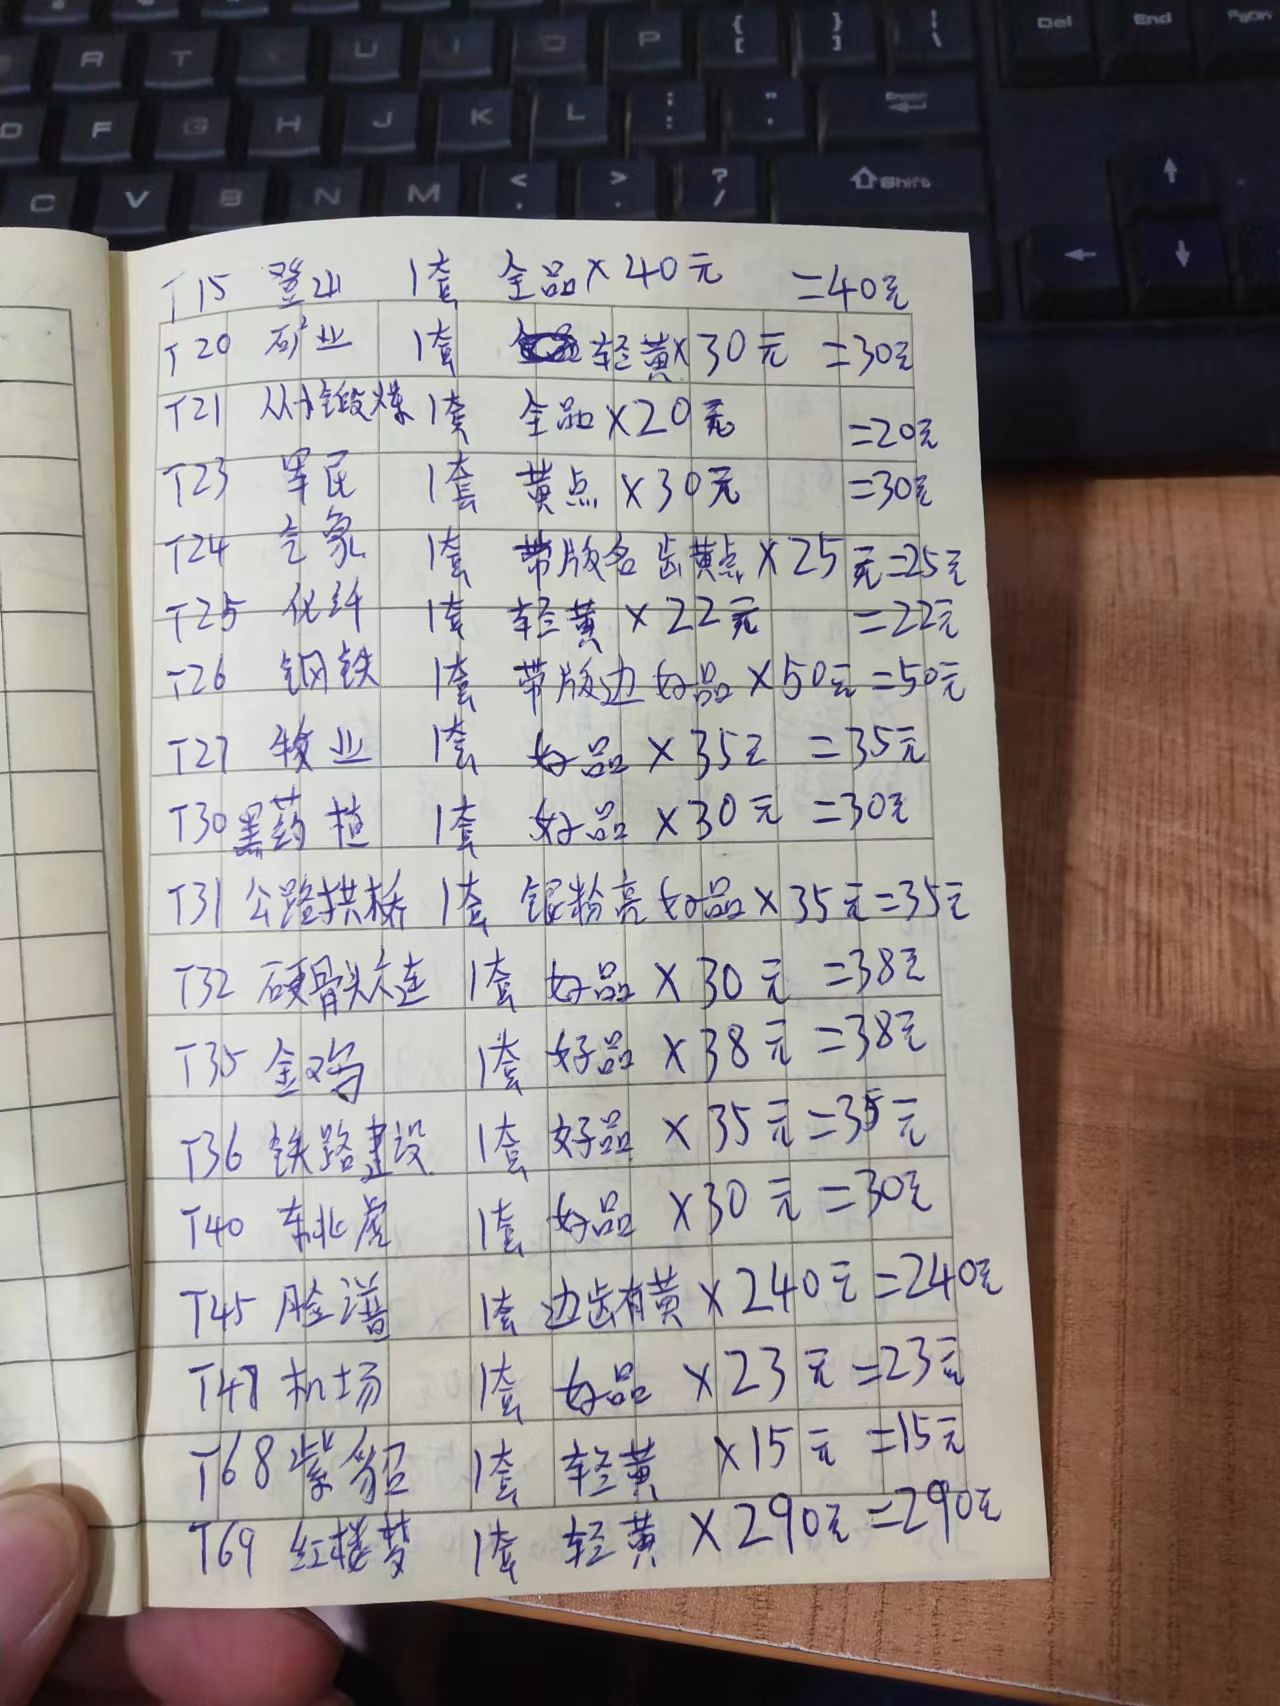 A T U I O P { [ } ] | \ Del End PgDn
D F G H J K L : ; " ' Enter
C V B N M < , > . ? / Shift
T15 登山 1套 全品×40元 =40元
T20 矿业 1套 轻黄×30元 =30元
T21 从小锻炼 1套 全品×20元 =20元
T23 军民 1套 黄点×30元 =30元
T24 气象 1套 带版名 齿黄点×25元=25元
T25 化纤 1套 轻黄×22元 =22元
T26 钢铁 1套 带版边 好品×50元=50元
T27 牧业 1套 好品×35元 =35元
T30 黑药植 1套 好品×30元=30元
T31 公路拱桥 1套 银粉亮 好品×35元=35元
T32 硬骨头六连 1套 好品×30元 =38元
T35 金鸡 1套 好品×38元=38元
T36 铁路建设 1套 好品×35元=35元
T40 东北虎 1套 好品×30元=30元
T45 脸谱 1套 边齿有黄×240元=240元
T47 机场 1套 好品×23元=23元
T68 紫貂 1套 轻黄×15元=15元
T69 红楼梦 1套 轻黄×290元=290元